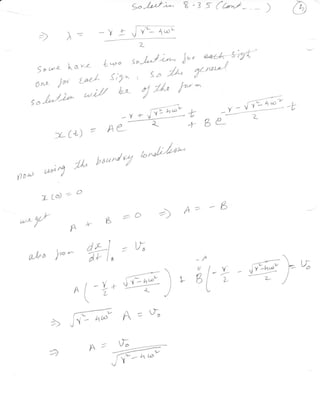 Solution 8-35 (Cont...) 4
⇒ λ = (-γ ± √(γ² - 4ω²)) / 2
so we have two solutions for each sign
one for each sign. So the general
solution will be of the form
x(t) = A e^((-γ + √(γ² - 4ω²))/2 t) + B e^((-γ - √(γ² - 4ω²))/2 t)
now using the boundary conditions
x(0) = 0
we get A + B = 0 ⇒ A = -B
also from dx/dt|₀ = v₀
-A
A(-γ/2 + √(γ² - 4ω²)/2) + B(-γ/2 - √(γ² - 4ω²)/2) = v₀
⇒ √(γ² - 4ω²) A = v₀
⇒ A = v₀ / √(γ² - 4ω²)